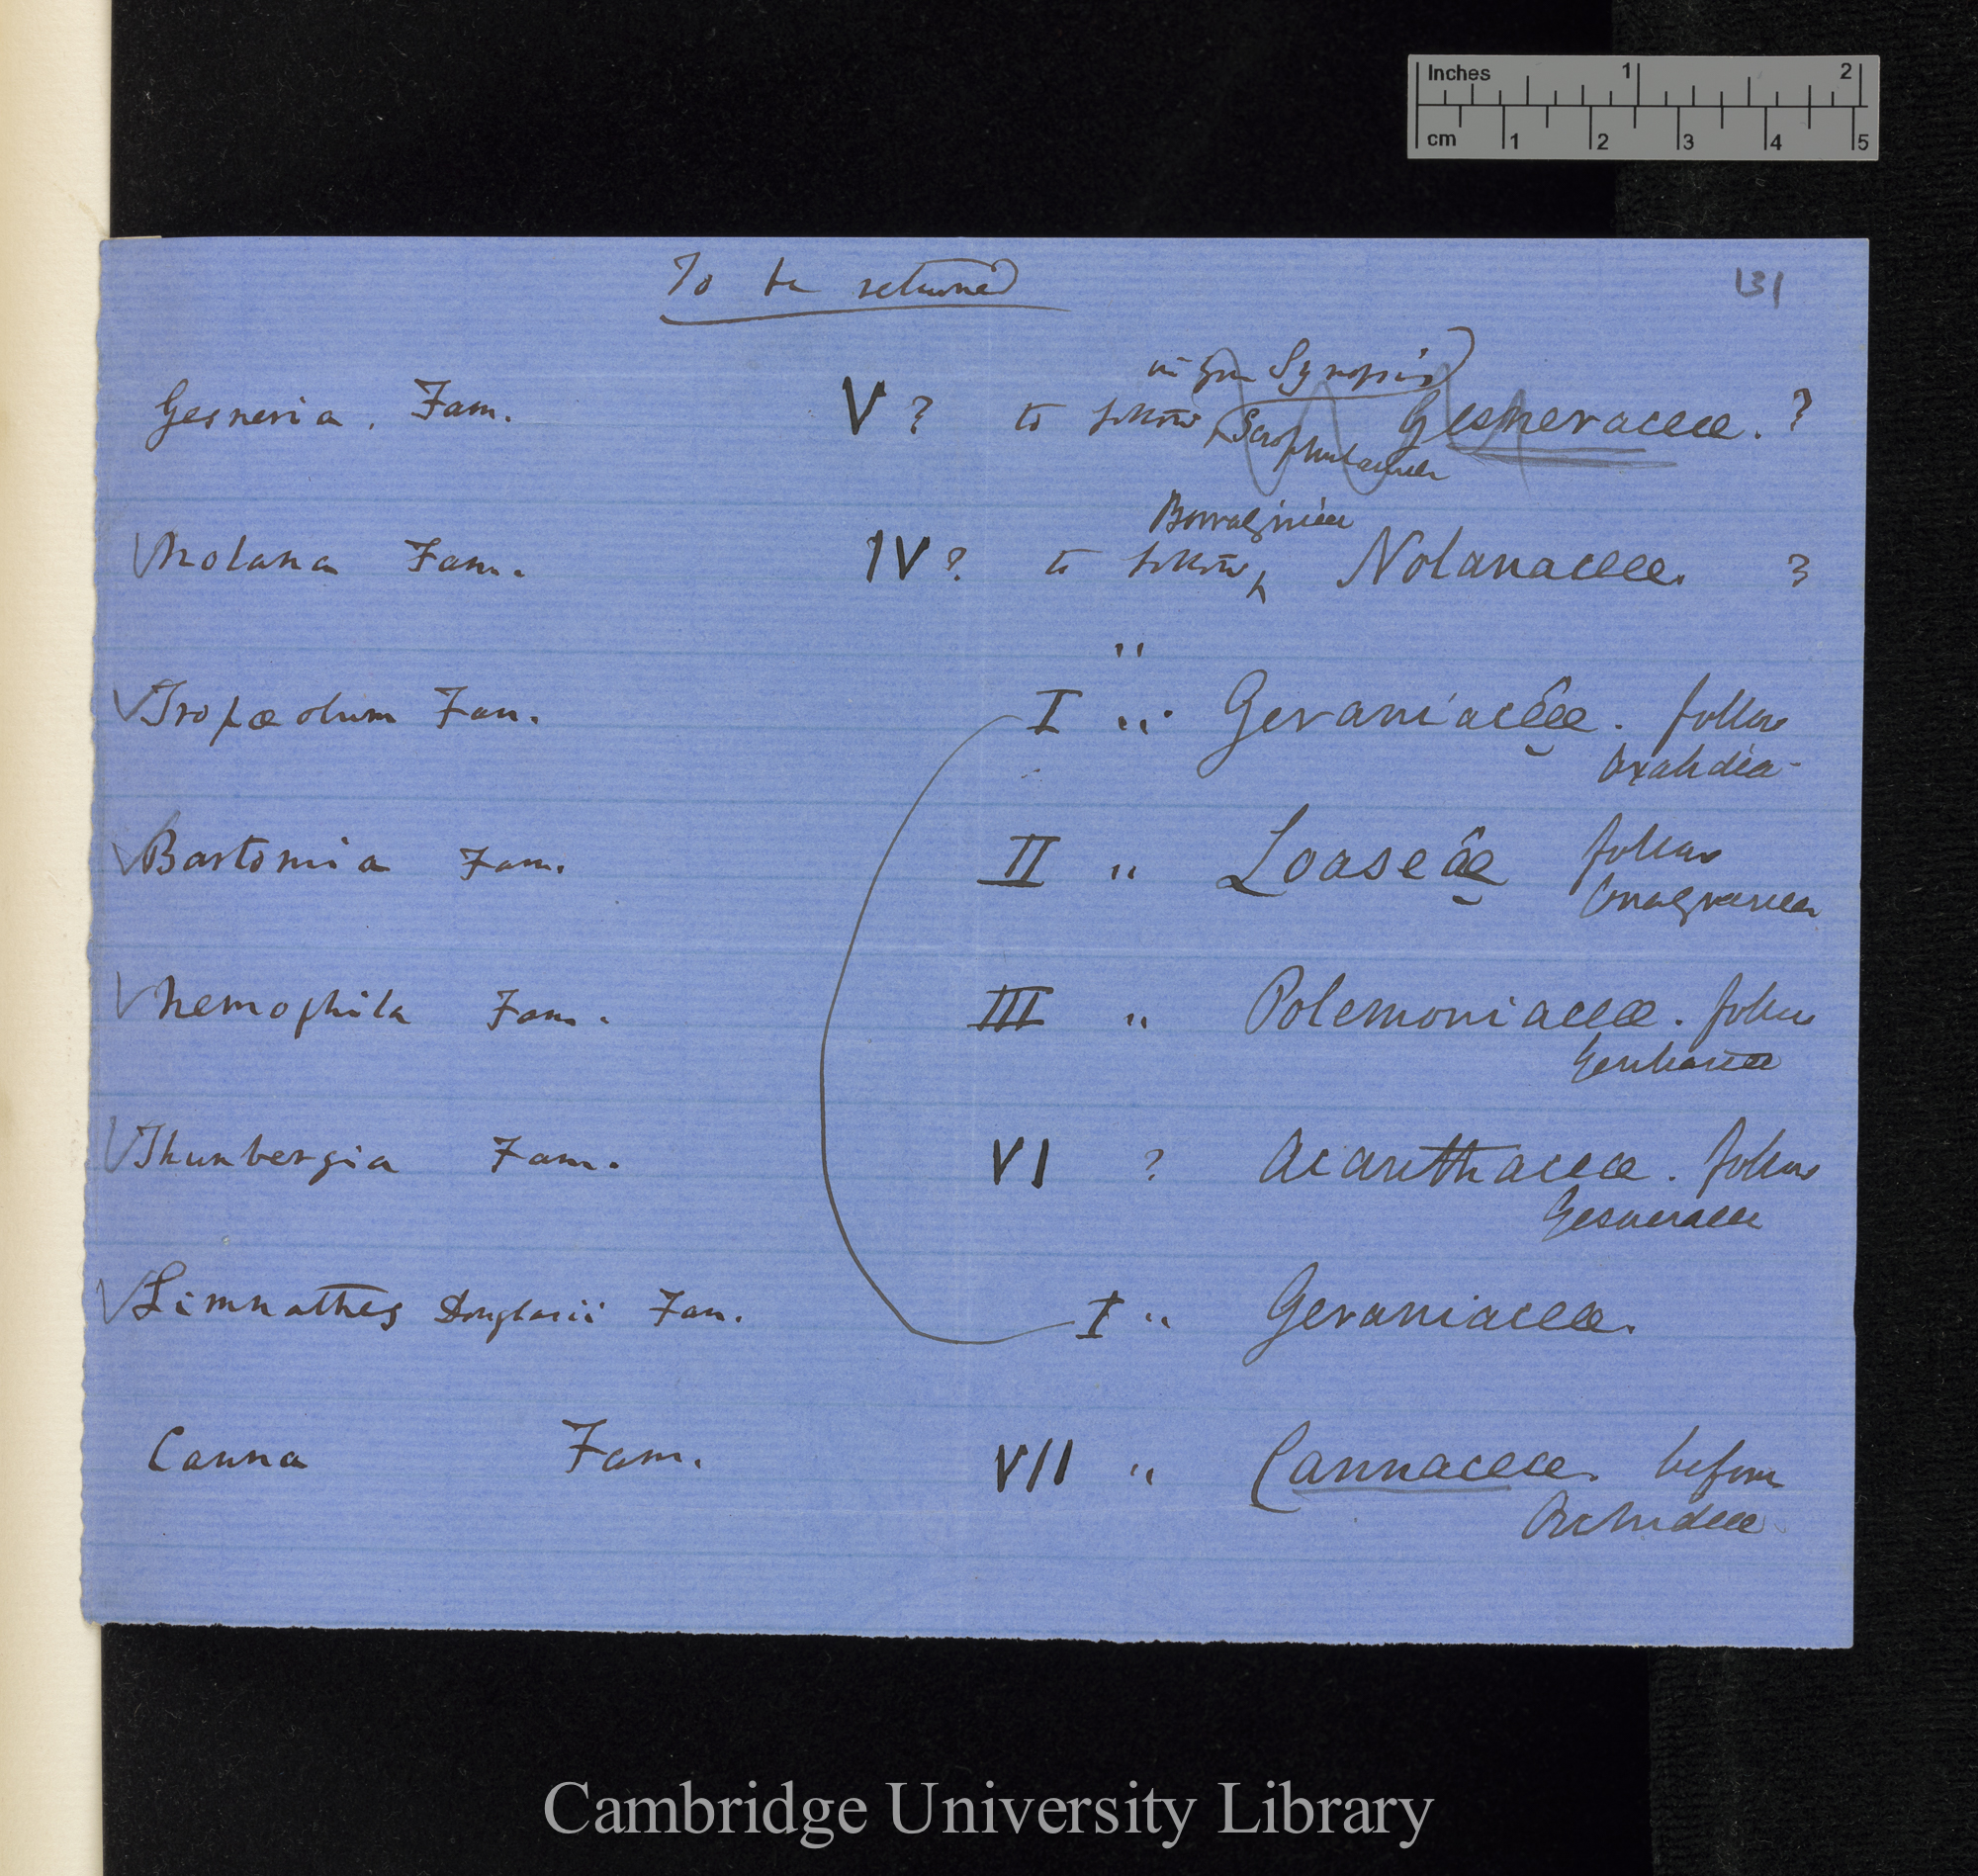 Inches 1 2
cm 1 2 3 4 5
To be returned
131
in your Synopsis
Gesneria. Fam. V ? to follow Scrophulariaceæ Gesneraceæ. ?
Borragineæ
Nolana Fam. IV ? to follow Nolanaceæ. ?
"
Tropæolum Fam. I " Geraniaceæ. follows
Oxalideæ
Bartonia Fam. II " Loaseæ follows
Onagrarieæ
Nemophila Fam. III " Polemoniaceæ. follows
Gentianeæ
Thunbergia Fam. VI ? Acanthaceæ. follows
Gesneraceæ
Limnathes Douglasii Fam. I " Geraniaceæ.
Canna Fam. VII " Cannaceæ. before
Orchideæ
Cambridge University Library